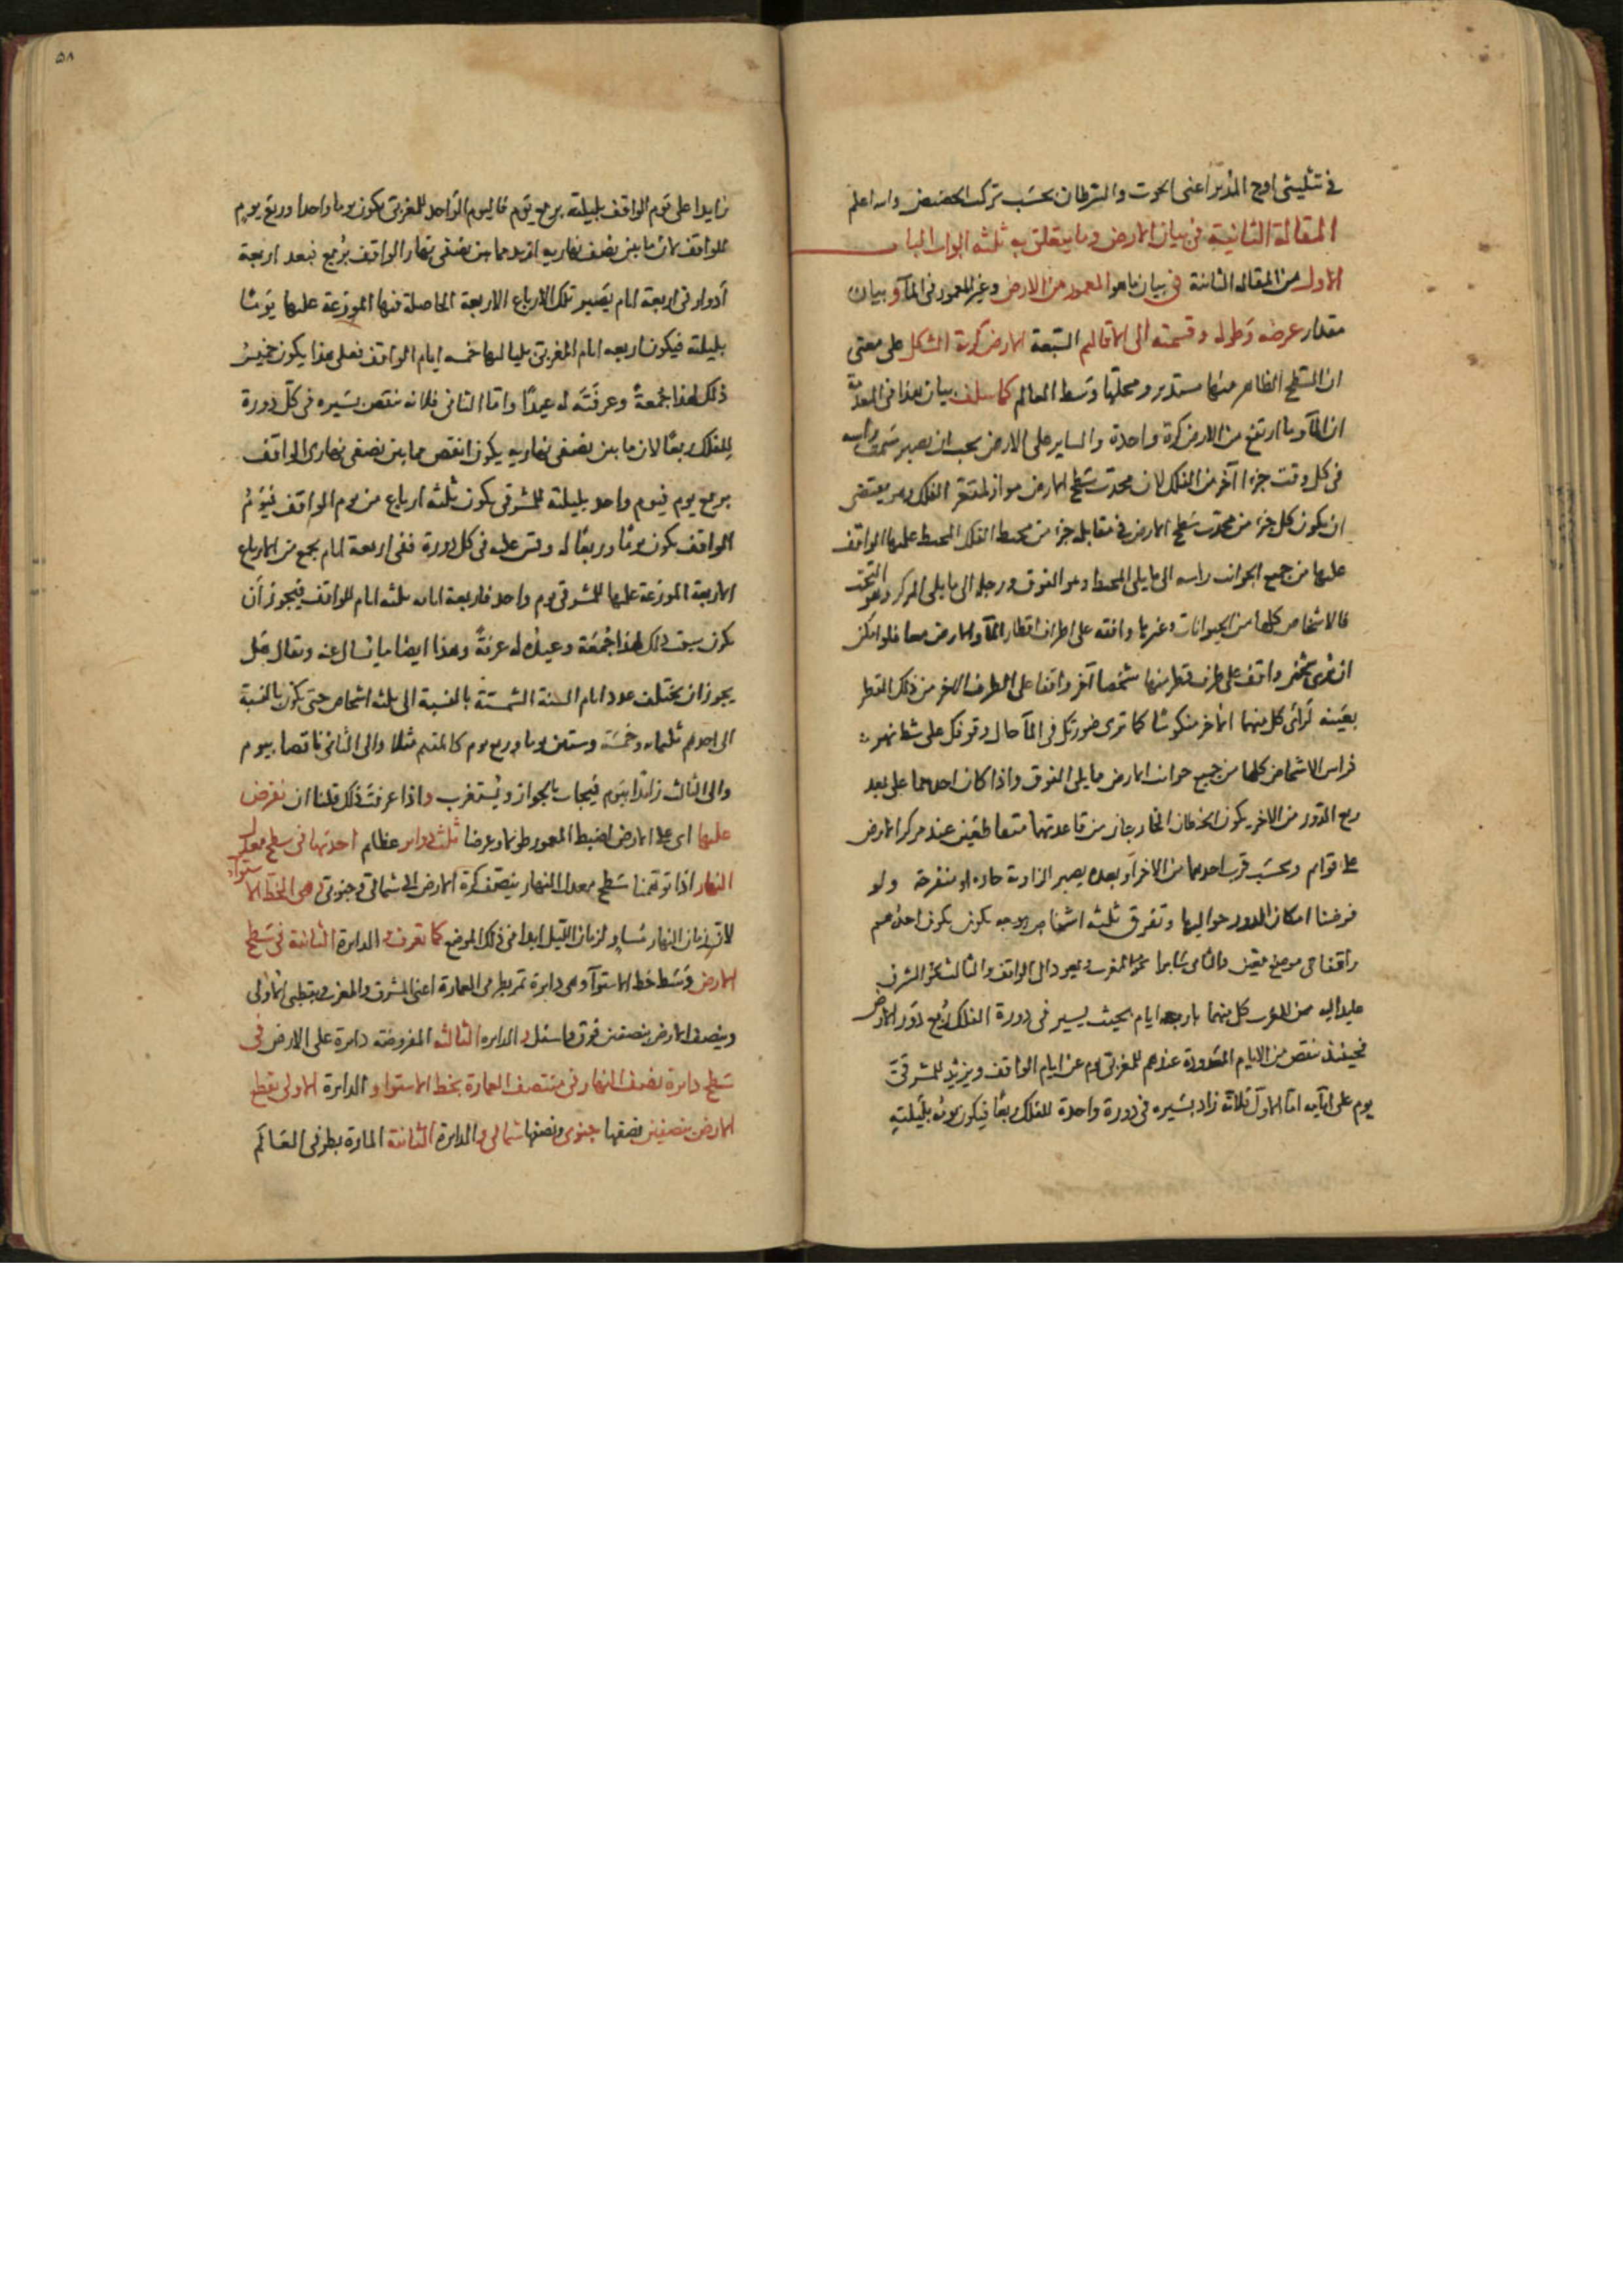 في تثليثي اوج المدير اعني الحوت والسرطان بحسب تركب الحضيض والله اعلم
المقالة الثانية في بيان الارض وما يتعلق به ثلثه ابواب الباب
الاول من المقاله الثانية في بيان ما هو المعمور من الارض وغير المعمور في الماء وبيان
مقدار عرضه وطوله وقسمته الى الاقاليم السبعة الارض كرية الشكل على معنى
ان السطح الظاهر منها مستدير ومحلها وسط العالم كما سلف بيان هذا في المقدمة
ان الماء وما ارتفع من الارض كرة واحدة والساير على الارض يجب ان يصير سمت راسه
في كل وقت جزءا آخر من الفلك لان محدب سطح الارض مواز لمقعر الفلك وهو يقتضي
ان يكون كل جزء من محدب سطح الارض في مقابله جزء من محيط الفلك المحيط عليها الواقف
عليها من جميع الجوانب راسه الى ما يلي المحيط وهو الفوق ورجله الى ما يلي المركز وهو التحت
فالاشخاص كلها من الحيوانات وغيرها واقفه على اطراف اقطار الماء والارض معا فلو امكن
ان يرى شخص واقف على طرف قطر منها شخصا آخر واقفا على الطرف الاخر من ذلك القطر
بعينه لرأى كل منهما الآخر منكوسا كما ترى صورتك في الماء حال وقوفك على شط نهر
فراس الاشخاص كلها من جميع جوانب الارض ما يلي الفوق واذا كان احدهما على بعد
ربع الدور من الاخر يكون الخطان الخارجان من قاعدتهما متقاطعين عند مركز الارض
على قوايم وبحسب قرب احدهما من الاخر او بعده يصير الزاوية حاده او منفرجة ولو
فرضنا امكان الدور حواليها وتفرق ثلثه اشخاص بوجه يكون يكون احدهم
واقفا في موضع معين والثاني سايرا نحو المغرب ويعود الى الواقف والثالث نحو المشرق
عايد اليه من المغرب كل منهما باربعه ايام بحيث يسير في دورة الفلك ربع دور الارض
فحينئذ ينقص من الايام المعدودة عندهم للمغربي يوم عن ايام الواقف ويزيد للمشرقي
يوم على ايامه اما الاول فلانه زاد بسيره في دورة واحدة للفلك ربعا فيكون يومه بليلته
٥٨
زايدا على يوم الواقف بليلته بربع يوم فاليوم الواحد للمغربي يكون يوما واحدا وربع يوم
للواقف لان ما بين نصف نهاريه ازيد مما بين نصفي نهار الواقف بربع فبعد اربعة
ادوار في اربعة ايام يصير تلك الارباع الاربعة الحاصلة فيها الموزعة عليها يوما
بليلته فيكون اربعه ايام المغربي بلياليها خمسه ايام الواقف فعلى هذا يكون خميس
ذلك لهذا جمعة وعرفته له عيدا واما الثاني فلانه ينقص بسيره في كل دورة
للفلك ربعا لان ما بين نصفي نهاريه يكون انقص مما بين نصفي نهاري الواقف
بربع يوم فيوم واحد بليلته للمشرقي يكون ثلثه ارباع من يوم الواقف فيوم
الواقف يكون يوما وربعا له وقس عليه في كل دورة ففي اربعة ايام يجمع من الارباع
الاربعة الموزعة عليها للمشرقي يوم واحد فاربعة ايامه ثلثه ايام للواقف فيجوز ان
يكون سبت ذلك لهذا جمعة وعيده له عرفة وهذا ايضا مما يسال عنه ويقال هل
يجوز ان يختلف عدد ايام السنة الشمسية بالنسبة الى ثلثه اشخاص حتى يكون بالنسبة
الى احدهم ثلثمايه وخمسة وستين يوما وربع يوم كالمقيم مثلا والى الثاني ناقصا بيوم
والى الثالث زايدا بيوم فيجاب بالجواز ويستغرب واذا عرفت ذلك قلنا ان نفرض
عليها اي على الارض لضبط المعمور طولا وعرضا ثلث دواير عظام احديها في سطح معدل
النهار اذا توهمنا سطح معدل النهار ينصف كرة الارض الى شمالي وجنوبي وهي الخط الاستواء
لان زمان النهار مساو لزمان الليل ابدا في ذلك الموضع كما تعرف والدايرة الثانية في سطح
الارض وسط خط الاستواء وهي دايرة تمر بطرفي العمارة اعني المشرق والمغرب وبقطبي الاولى
وينصف الارض بنصفين فوق واسفل والدايره الثالثه المفروضه دايرة على الارض في
سطح دايرة نصف النهار في منتصف العمارة بخط الاستواء والدايرة الاولى يقطع
الارض بنصفين نصفها جنوبي ونصفها شمالي والدايرة الثانية المارة بطرفي العالم